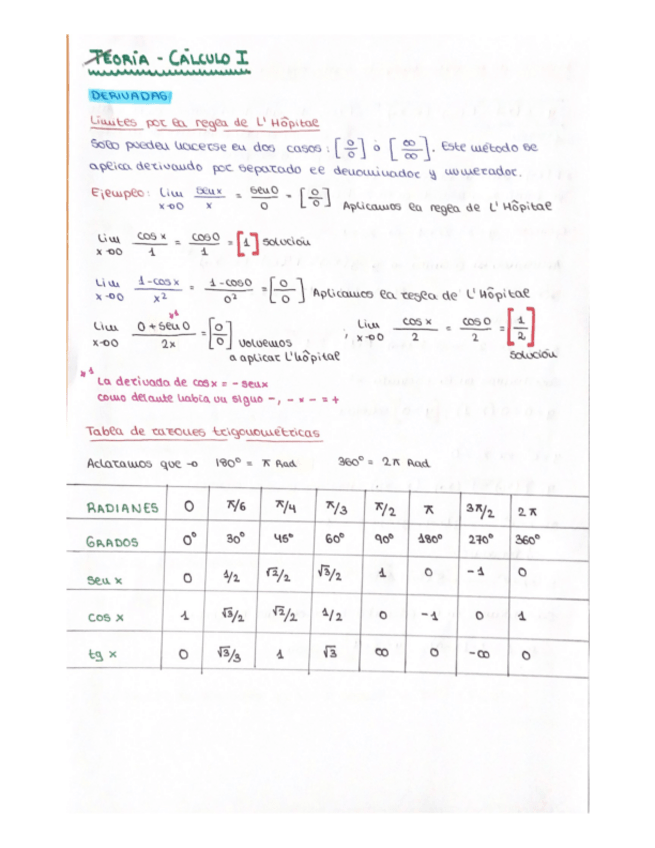 TEORÍA - CÁLCULO I
DERIVADAS
Límites por la regla de L'Hôpital
Solo pueden hacerse en dos casos: [0/0] ó [∞/∞]. Este método se
aplica derivando por separado el denominador y numerador.
Ejemplo: Lim x→0 sen x / x = sen 0 / 0 = [0/0] Aplicamos la regla de L'Hôpital
Lim x→0 cos x / 1 = cos 0 / 1 = [1] solución
Lim x→0 1-cos x / x² = 1-cos 0 / 0² = [0/0] Aplicamos la regla de L'Hôpital
Lim x→0 0 + sen 0 *1 / 2x = [0/0] volvemos a aplicar L'hôpital ; Lim x→0 cos x / 2 = cos 0 / 2 = [1/2] solución
*1 La derivada de cos x = - sen x
como delante había un signo -, - × - = +
Tabla de razones trigonométricas
Aclaramos que → 180° = π Rad 360° = 2π Rad
RADIANES 0 π/6 π/4 π/3 π/2 π 3π/2 2π
GRADOS 0° 30° 45° 60° 90° 180° 270° 360°
sen x 0 1/2 √2/2 √3/2 1 0 -1 0
cos x 1 √3/2 √2/2 1/2 0 -1 0 1
tg x 0 √3/3 1 √3 ∞ 0 -∞ 0